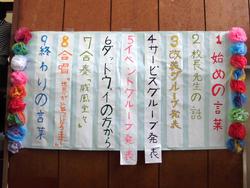 1 始めの言葉
2 校長先生の話
3 改善グループ発表
4 サービスグループ発表
5 イベントグループ発表
6 ダットウィの方から
7 合奏「威風堂々」
8 合唱
9 終わりの言葉